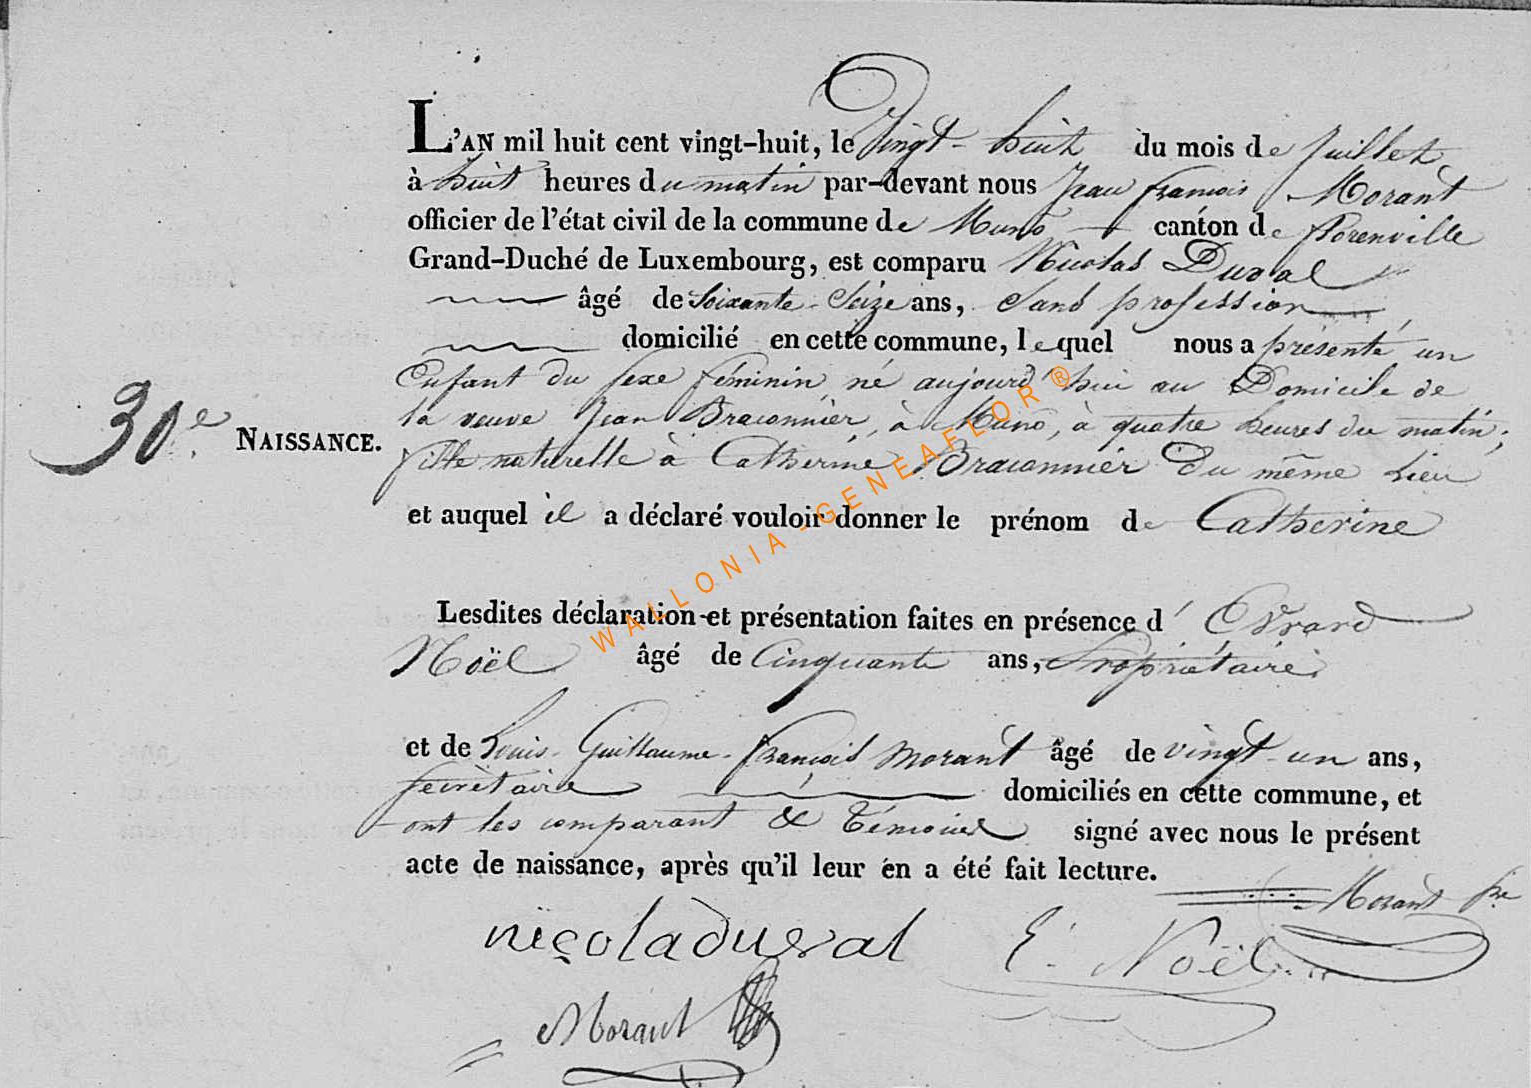 L'AN mil huit cent vingt-huit, le Vingt-huit du mois de Juillet
à huit heures du matin par-devant nous Jean François Morant
officier de l'état civil de la commune de Muno canton de florenville
Grand-Duché de Luxembourg, est comparu Nicolas Duval
âgé de Soixante-Seize ans, Sans profession
domicilié en cette commune, lequel nous a présenté un
Enfant du sexe féminin né aujourd'hui au Domicile de
la veuve Jean Braconnier, à Muno, à quatre heures du matin;
30e NAISSANCE.
fille naturelle à Catherine Braconnier du même Lieu
et auquel il a déclaré vouloir donner le prénom de Catherine
Lesdites déclaration et présentation faites en présence d'Evrard
Noël âgé de Cinquante ans, Propriétaire
et de Louis-Guillaume-françois Morant âgé de vingt-un ans,
secrètaire domiciliés en cette commune, et
ont les comparant & Témoins signé avec nous le présent
acte de naissance, après qu'il leur en a été fait lecture.
Morant
niçoladuval E. Noël
Morant
WALLONIA-GENEAFLOR®